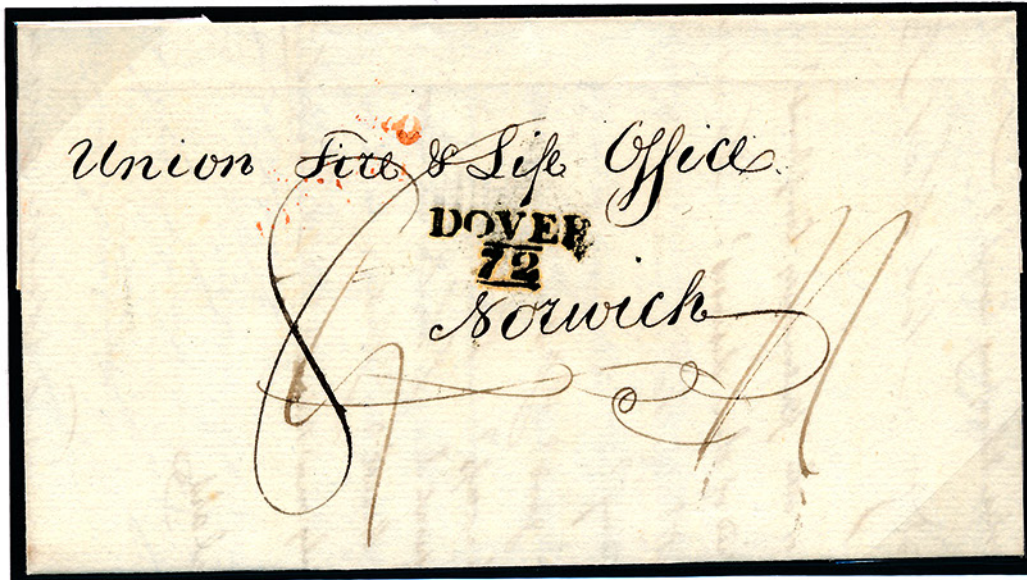 Union Fire & Life Office.
DOVER
72
Norwich
8